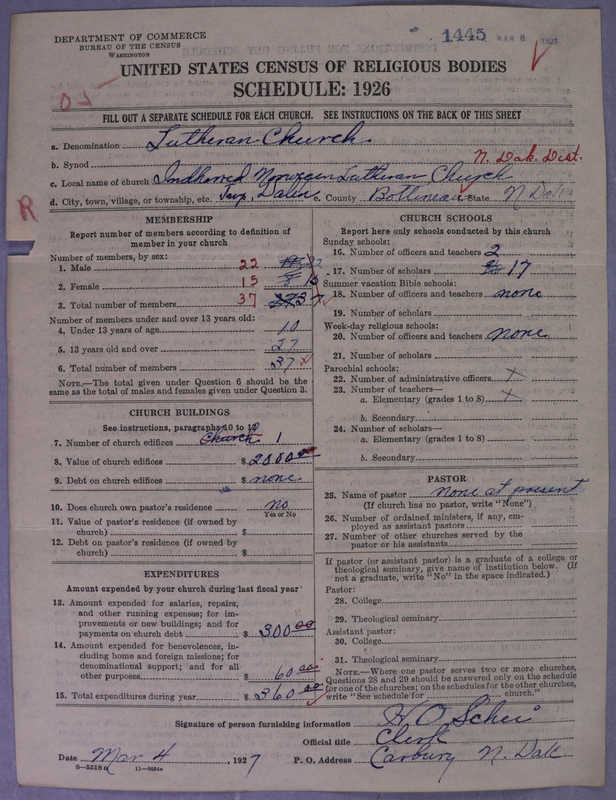 DEPARTMENT OF COMMERCE
BUREAU OF THE CENSUS
WASHINGTON
1445 MAR 8 1927
UNITED STATES CENSUS OF RELIGIOUS BODIES
SCHEDULE: 1926
FILL OUT A SEPARATE SCHEDULE FOR EACH CHURCH. SEE INSTRUCTIONS ON THE BACK OF THIS SHEET
a. Denomination Lutheran Church
b. Synod N. Dak. Dist.
c. Local name of church Indherred Norwegen Lutheran Church
d. City, town, village, or township, etc. Twp. Dalen e. County Bottineau State N Dak
R
MEMBERSHIP
Report number of members according to definition of
member in your church
Number of members, by sex:
1. Male 22
2. Female 15
3. Total number of members 37
Number of members under and over 13 years old:
4. Under 13 years of age 10
5. 13 years old and over 27
6. Total number of members 37
NOTE.—The total given under Question 6 should be the
same as the total of males and females given under Question 3.
CHURCH BUILDINGS
See instructions, paragraphs 10 to 12
7. Number of church edifices Church 1
8. Value of church edifices $ 2000.00
9. Debt on church edifices $ none
10. Does church own pastor's residence no
Yes or No
11. Value of pastor's residence (if owned by
church) $
12. Debt on pastor's residence (if owned by
church) $
EXPENDITURES
Amount expended by your church during last fiscal year
13. Amount expended for salaries, repairs,
and other running expense; for im-
provements or new buildings; and for
payments on church debt $ 300.00
14. Amount expended for benevolences, in-
cluding home and foreign missions; for
denominational support; and for all
other purposes $ 60.00
15. Total expenditures during year $ 360.00
CHURCH SCHOOLS
Report here only schools conducted by this church
Sunday schools:
16. Number of officers and teachers 2
17. Number of scholars 17
Summer vacation Bible schools:
18. Number of officers and teachers none
19. Number of scholars
Week-day religious schools:
20. Number of officers and teachers none
21. Number of scholars
Parochial schools:
22. Number of administrative officers x
23. Number of teachers—
a. Elementary (grades 1 to 8) x
b. Secondary
24. Number of scholars—
a. Elementary (grades 1 to 8)
b. Secondary
PASTOR
25. Name of pastor none at present
(If church has no pastor, write "None")
26. Number of ordained ministers, if any, em-
ployed as assistant pastors
27. Number of other churches served by the
pastor or his assistants
If pastor (or assistant pastor) is a graduate of a college or
theological seminary, give name of institution below. (If
not a graduate, write "No" in the space indicated.)
Pastor:
28. College
29. Theological seminary
Assistant pastor:
30. College
31. Theological seminary
NOTE.—Where one pastor serves two or more churches,
Questions 28 and 29 should be answered only on the schedule
for one of the churches; on the schedules for the other churches,
write "See schedule for church."
Signature of person furnishing information H O Schei
Official title Clerk
Date Mar 4, 1927 P. O. Address Carbury N. Dak
8—5318a 11—9084a